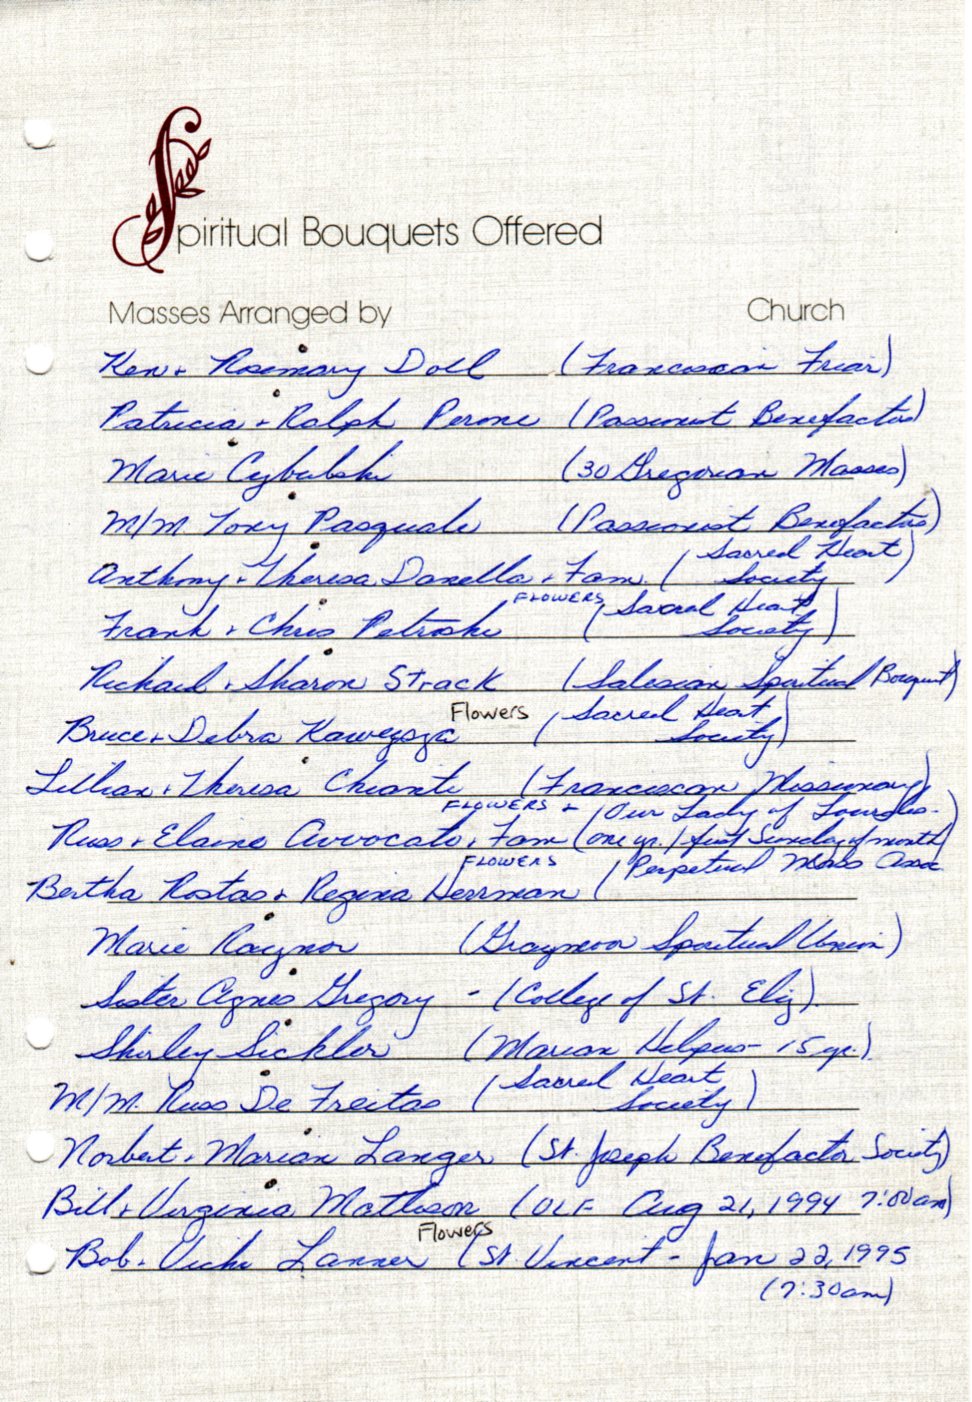 Spiritual Bouquets Offered
Masses Arranged by Church
Ken + Rosemary Doll (Franciscan Friar)
Patricia + Ralph Perone (Passionist Benefactors)
Marie Cybulski (30 Gregorian Masses)
M/M. Tony Pasquale (Passionist Benefactors)
Anthony + Theresa Danella + Fam. (Sacred Heart
Society)
FLOWERS
Frank + Chris Petroski (Sacred Heart
Society)
Richard + Sharon Strack (Salesian Spiritual Bouquet)
Flowers
Bruce + Debra (Sacred Heart
Society)
Lillian + Theresa Chianti (Franciscan Missionary)
FLOWERS + (Our Lady of Lourdes -
Russ + Elaine Avvocato + Fam (one yr. / first Sunday of month)
FLOWERS (Perpetual Mass Assoc.
Bertha Rostas + Regina Herrman
Marie Raynor (Graymoor Spiritual Union)
Sister Agnes Gregory - (College of St. Eliz).
Shirley Sickler (Marian Helpers - 15 yr.)
M/M. Russ De Freitas (Sacred Heart
Society)
Norbert + Marian Langer (St. Joseph Benefactor Society)
Bill + Virginia Matheson (OLF Aug 21, 1994 7:00am)
Flowers
Bob + Vicki Lanner (St. Vincent - Jan 22, 1995
(7:30am)